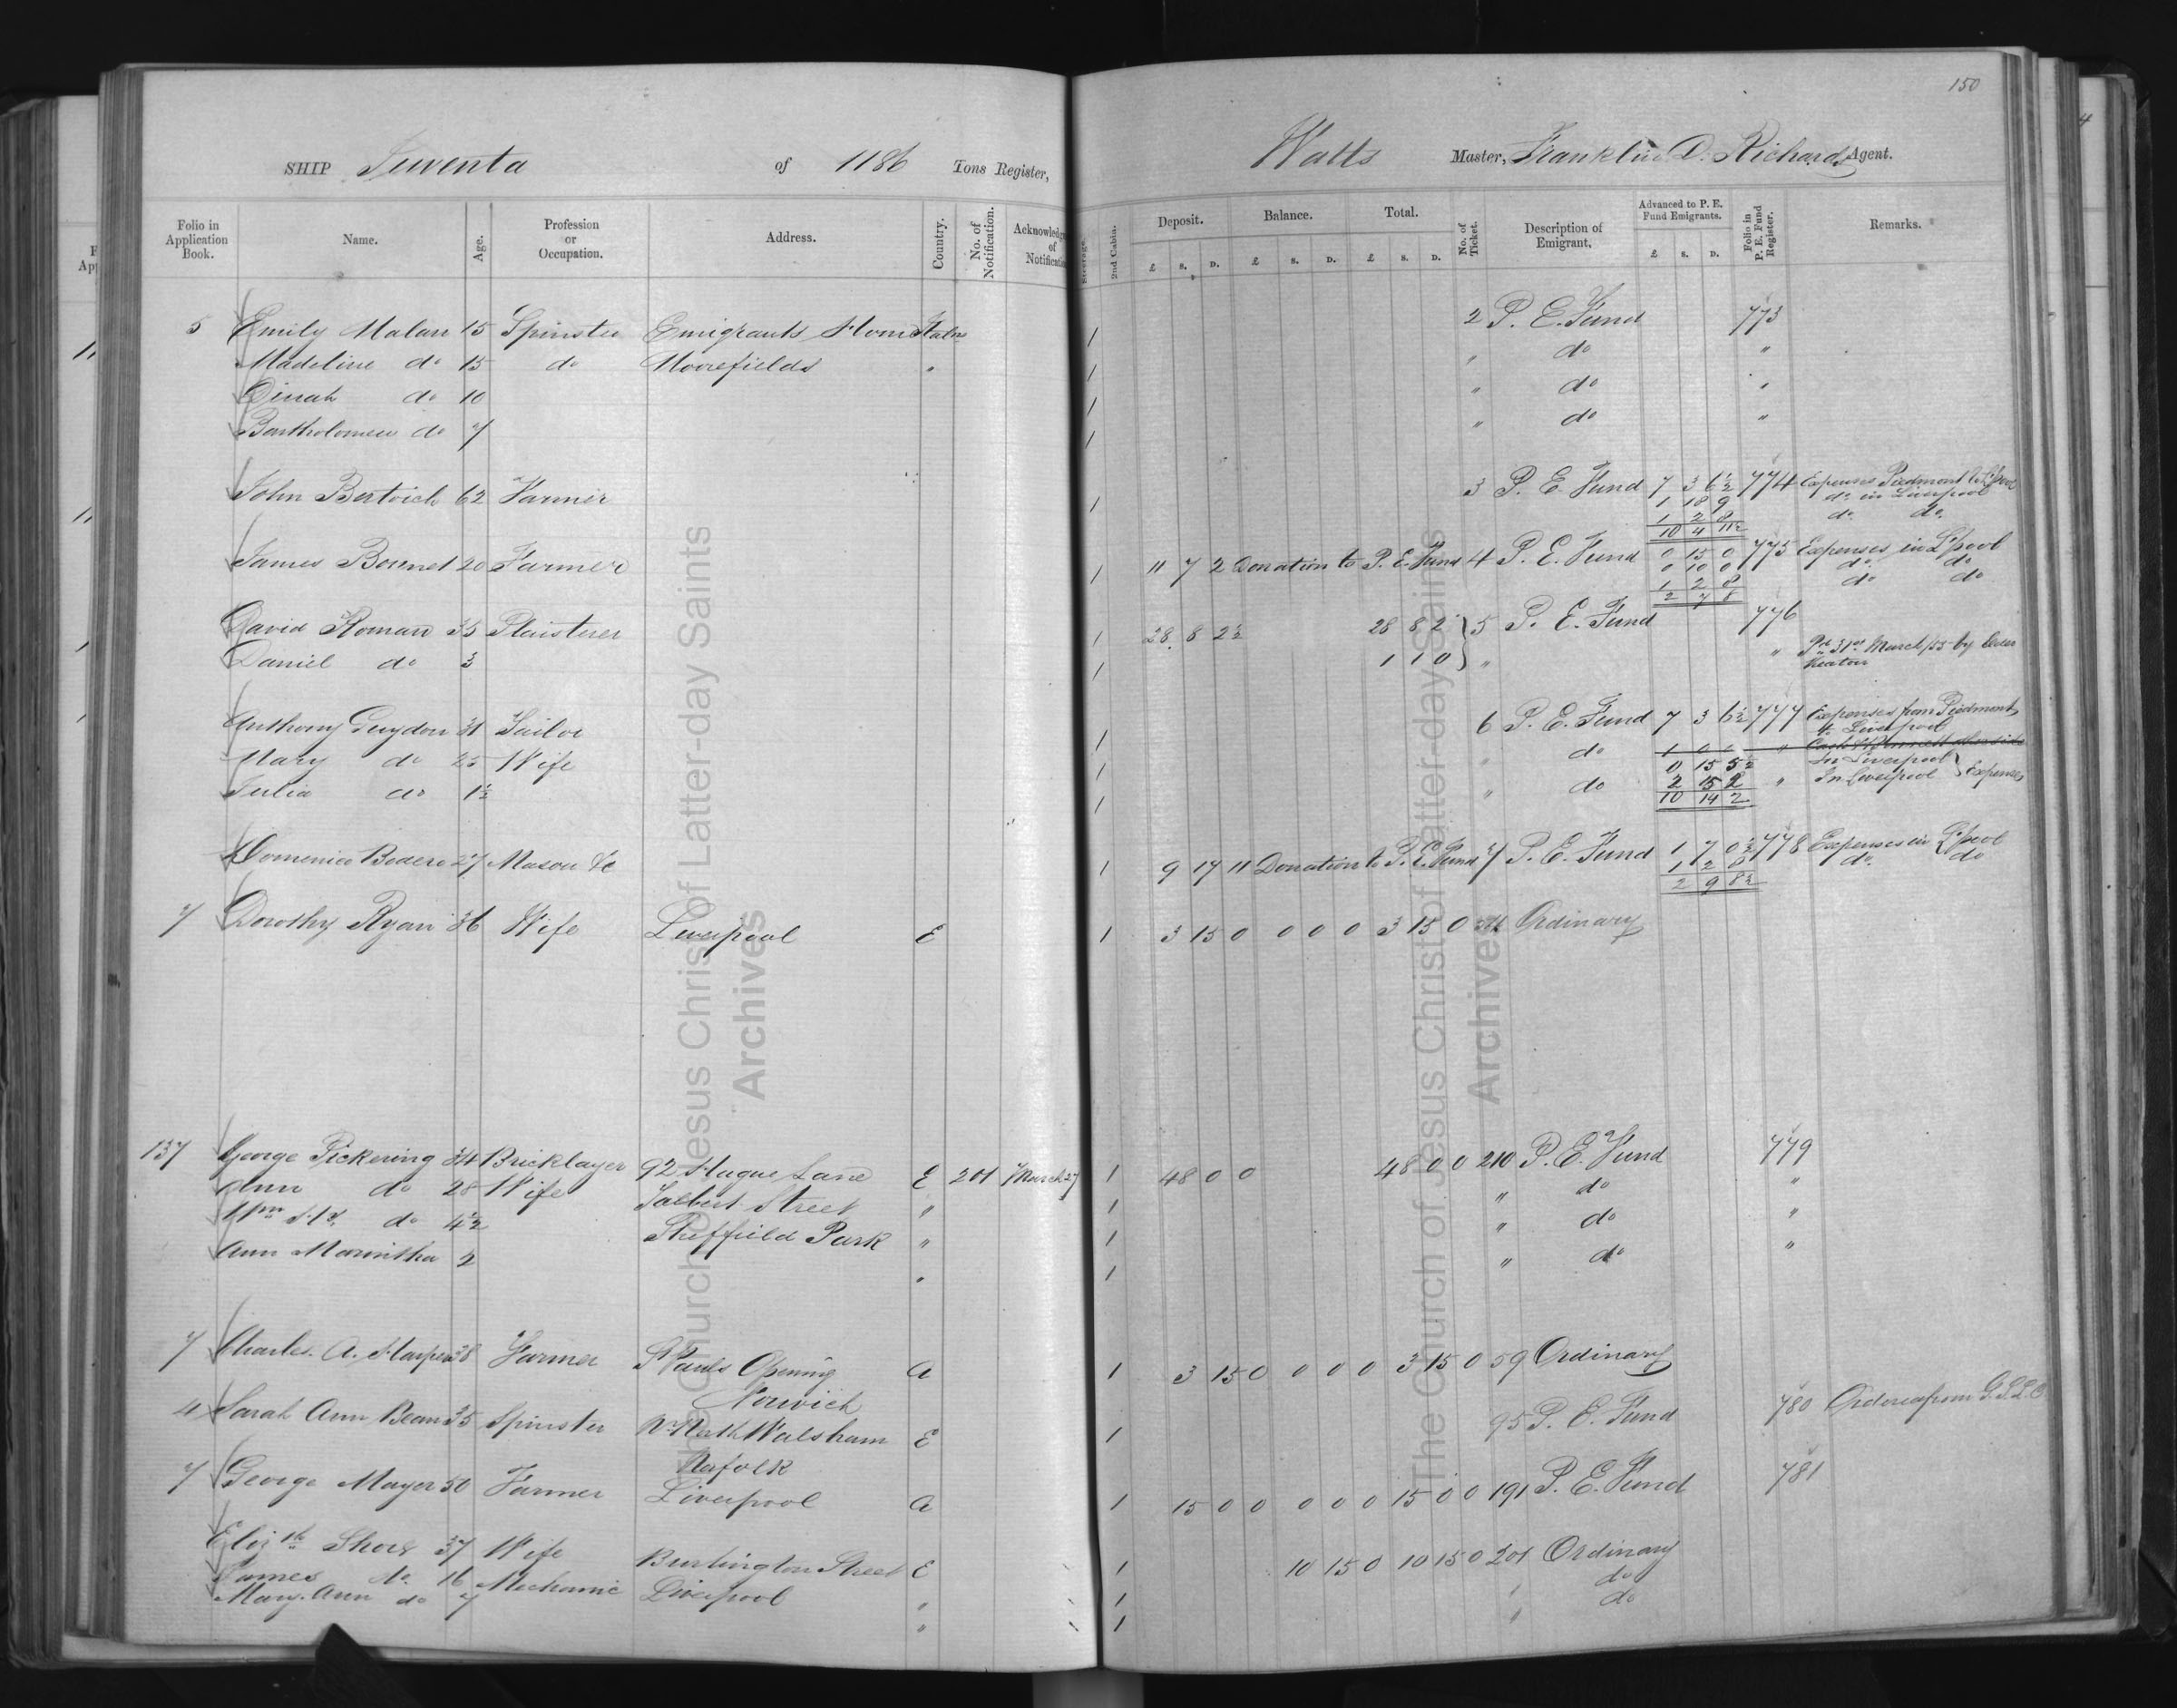 150
SHIP Juventa of 1186 Tons Register, Watts Master, Franklin D. Richards Agent.
Folio in Application Book. Name. Age. Profession or Occupation. Address. Country. No. of Notification. Acknowledg of Notificatio Steerage. 2nd Cabin. Deposit. £ S. D. Balance. £ S. D. Total. £ S. D. No. of Ticket. Description of Emigrant. Advanced to P. E. Fund Emigrants. £ S. D. Folio in P. E. Fund Register. Remarks.
5 Emily Malan 15 Spinster Emigrants Home Italy 1 2 P. E. Fund 773
Madeline do 15 do Moorefields " 1 " do "
Dinah do 10 1 " do "
Bartholomew do 7 1 " do "
John Bertoich 62 Farmer 1 3 P. E. Fund 7 3 6½ 774 Expenses Piedmont to L'pool
1 18 9 do in Liverpool
1 2 8 do. do.
10 4 11½
James Bonnet 20 Farmer 1 11 7 2 Donation to P. E. Fund 4 P. E. Fund 0 15 0 775 Expenses in L'pool
0 10 0 do. do
1 2 8 do do
2 7 8
David Roman 35 Plaisterer 1 28 8 2½ 28 8 2 5 P. E. Fund 776
Daniel do 3 1 1 1 0 " " Pd 31st March/55 by
Anthony Gaydon 31 Sailor 1 6 P. E. Fund 7 3 6½ 777 Expenses from Piedmont
to Liverpool
Mary do 25 Wife 1 " do 1 0 0 "
0 15 5½ In Liverpool
Julia do 1½ 1 " do 2 15 2 " In Liverpool Expenses
10 14 2
Domenica Bodere 27 Mason &c 1 9 17 11 Donation to P. E. Fund 7 P. E. Fund 1 7 0½ 778 Expenses in L'pool
1 2 8 do. do
2 9 8½
7 Dorothy Ryan 36 Wife Liverpool E 1 3 15 0 0 0 0 3 15 0 Ordinary
137 George Pickering 34 Bricklayer 92 Hague Lane E 201 March 27 1 48 0 0 48 0 0 210 P. E. Fund 779
Ann do 28 Wife Talbut Street " 1 " do "
Wm Hy. do 4½ Sheffield Park " 1 " do "
Ann Marintha 2 " 1 " do "
7 Charles A. Harper 38 Farmer St Pauls Opening A 1 3 15 0 0 0 0 3 15 0 59 Ordinary
Norwich
4 Sarah Ann Bean 35 Spinster Nr North Walsham E 1 95 P. E. Fund 780 Ordered from G.S.L.C
Norfolk
7 George Mayer 50 Farmer Liverpool A 1 15 0 0 0 0 0 15 0 0 191 P. E. Fund 781
Elizth Shores 37 Wife Burlington Street E 1 10 15 0 10 15 0 201 Ordinary
James do. 16 Mechanic Liverpool " 1 " do
Mary Ann do 7 " 1 " do
The Church of Jesus Christ of Latter-day Saints
Archives
The Church of Jesus Christ of Latter-day Saints
Archives